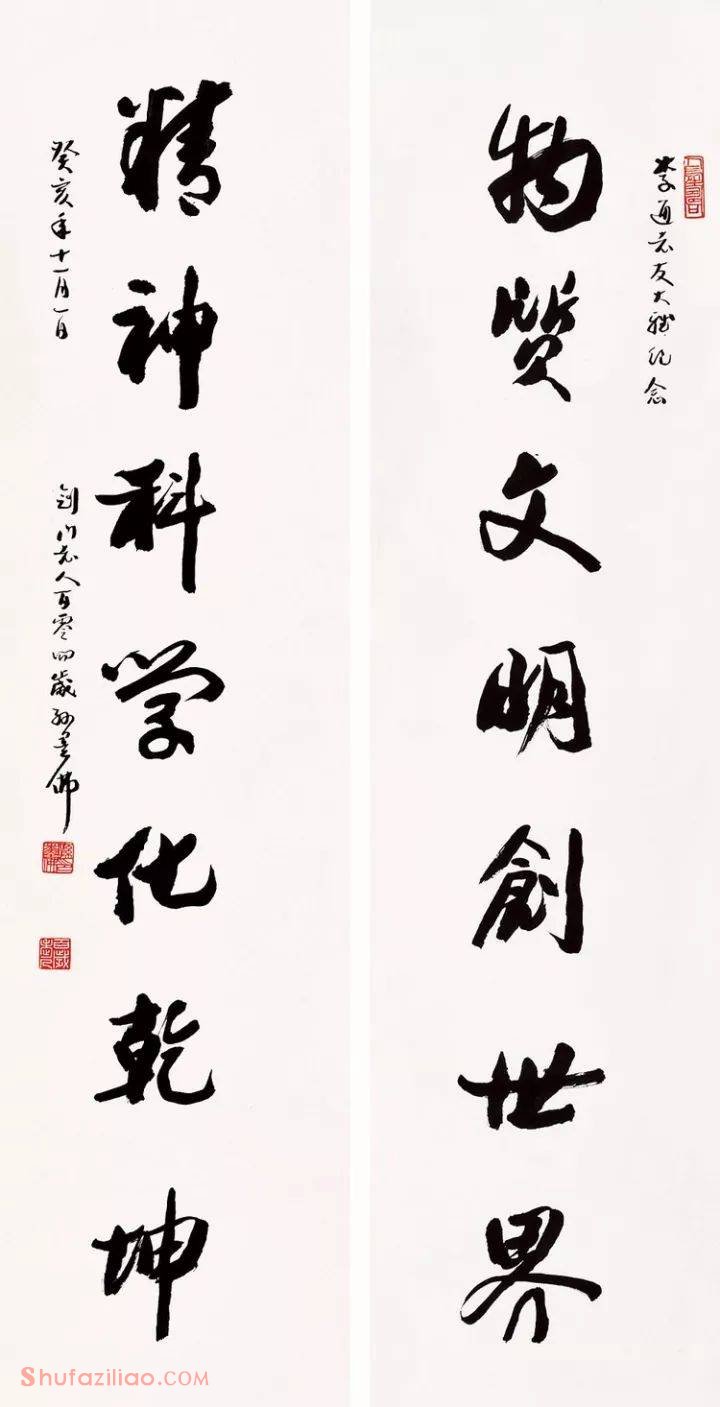 李通老友大雅纪念
物质文明創世界
精神科学化乾坤
癸亥年十一月一日
剑门老人百零四歲孙墨佛
Shufaziliao.com